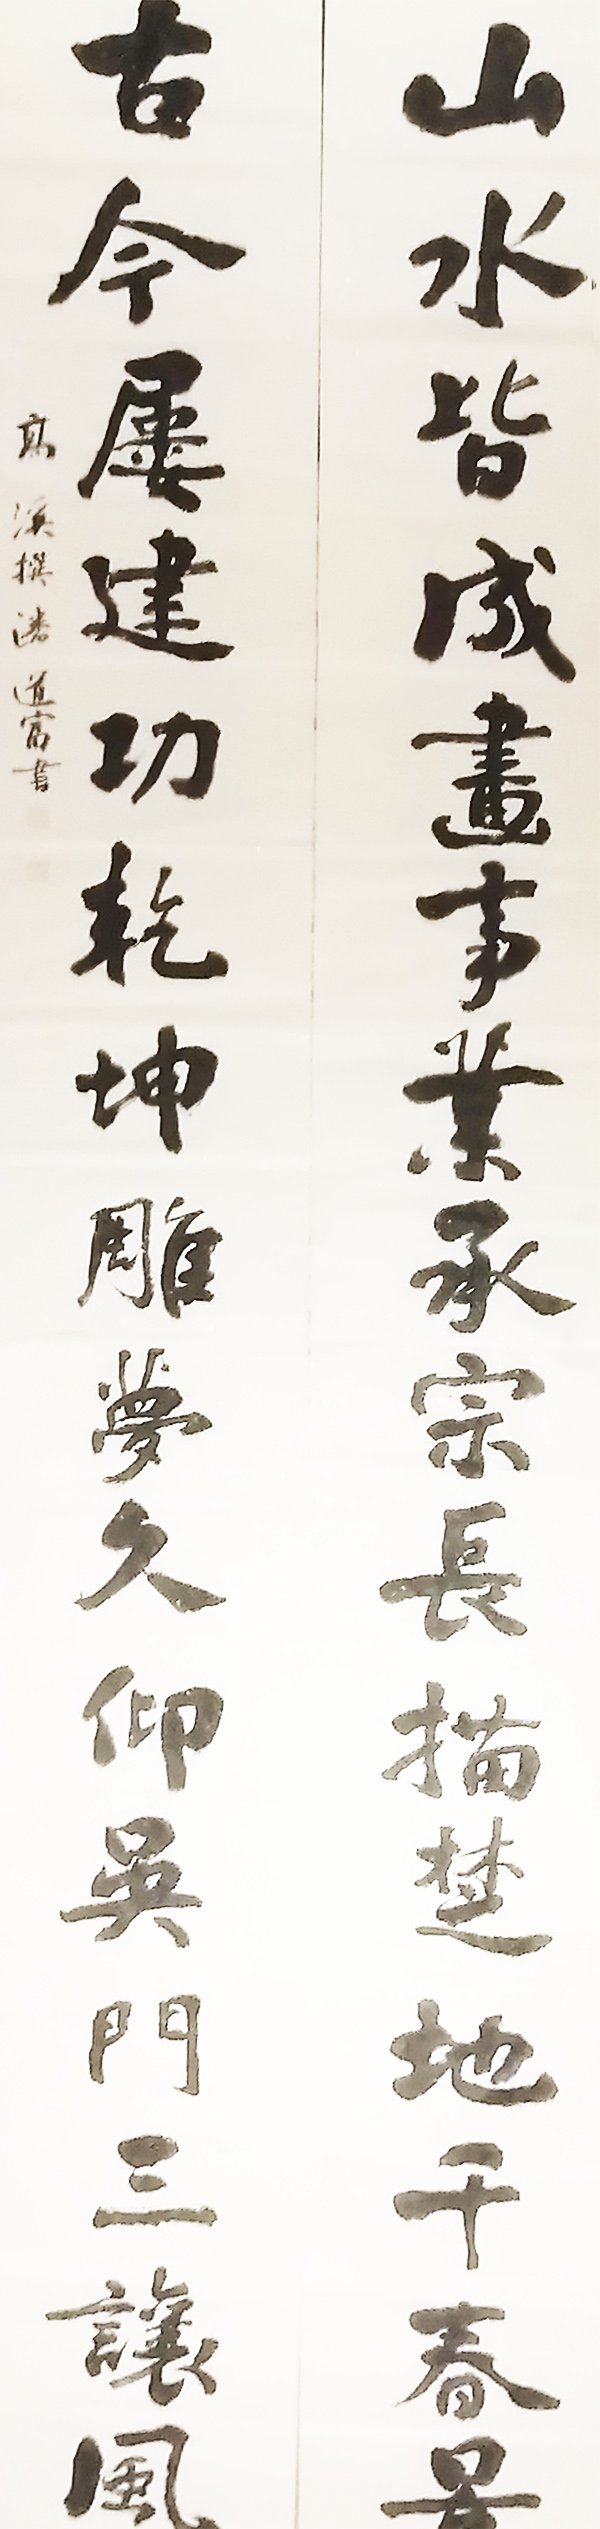 山水皆成畫事業承宗長描楚地千春景
古今屢建功乾坤雕夢久仰吳門三讓風
高 溪撰 潘道富書